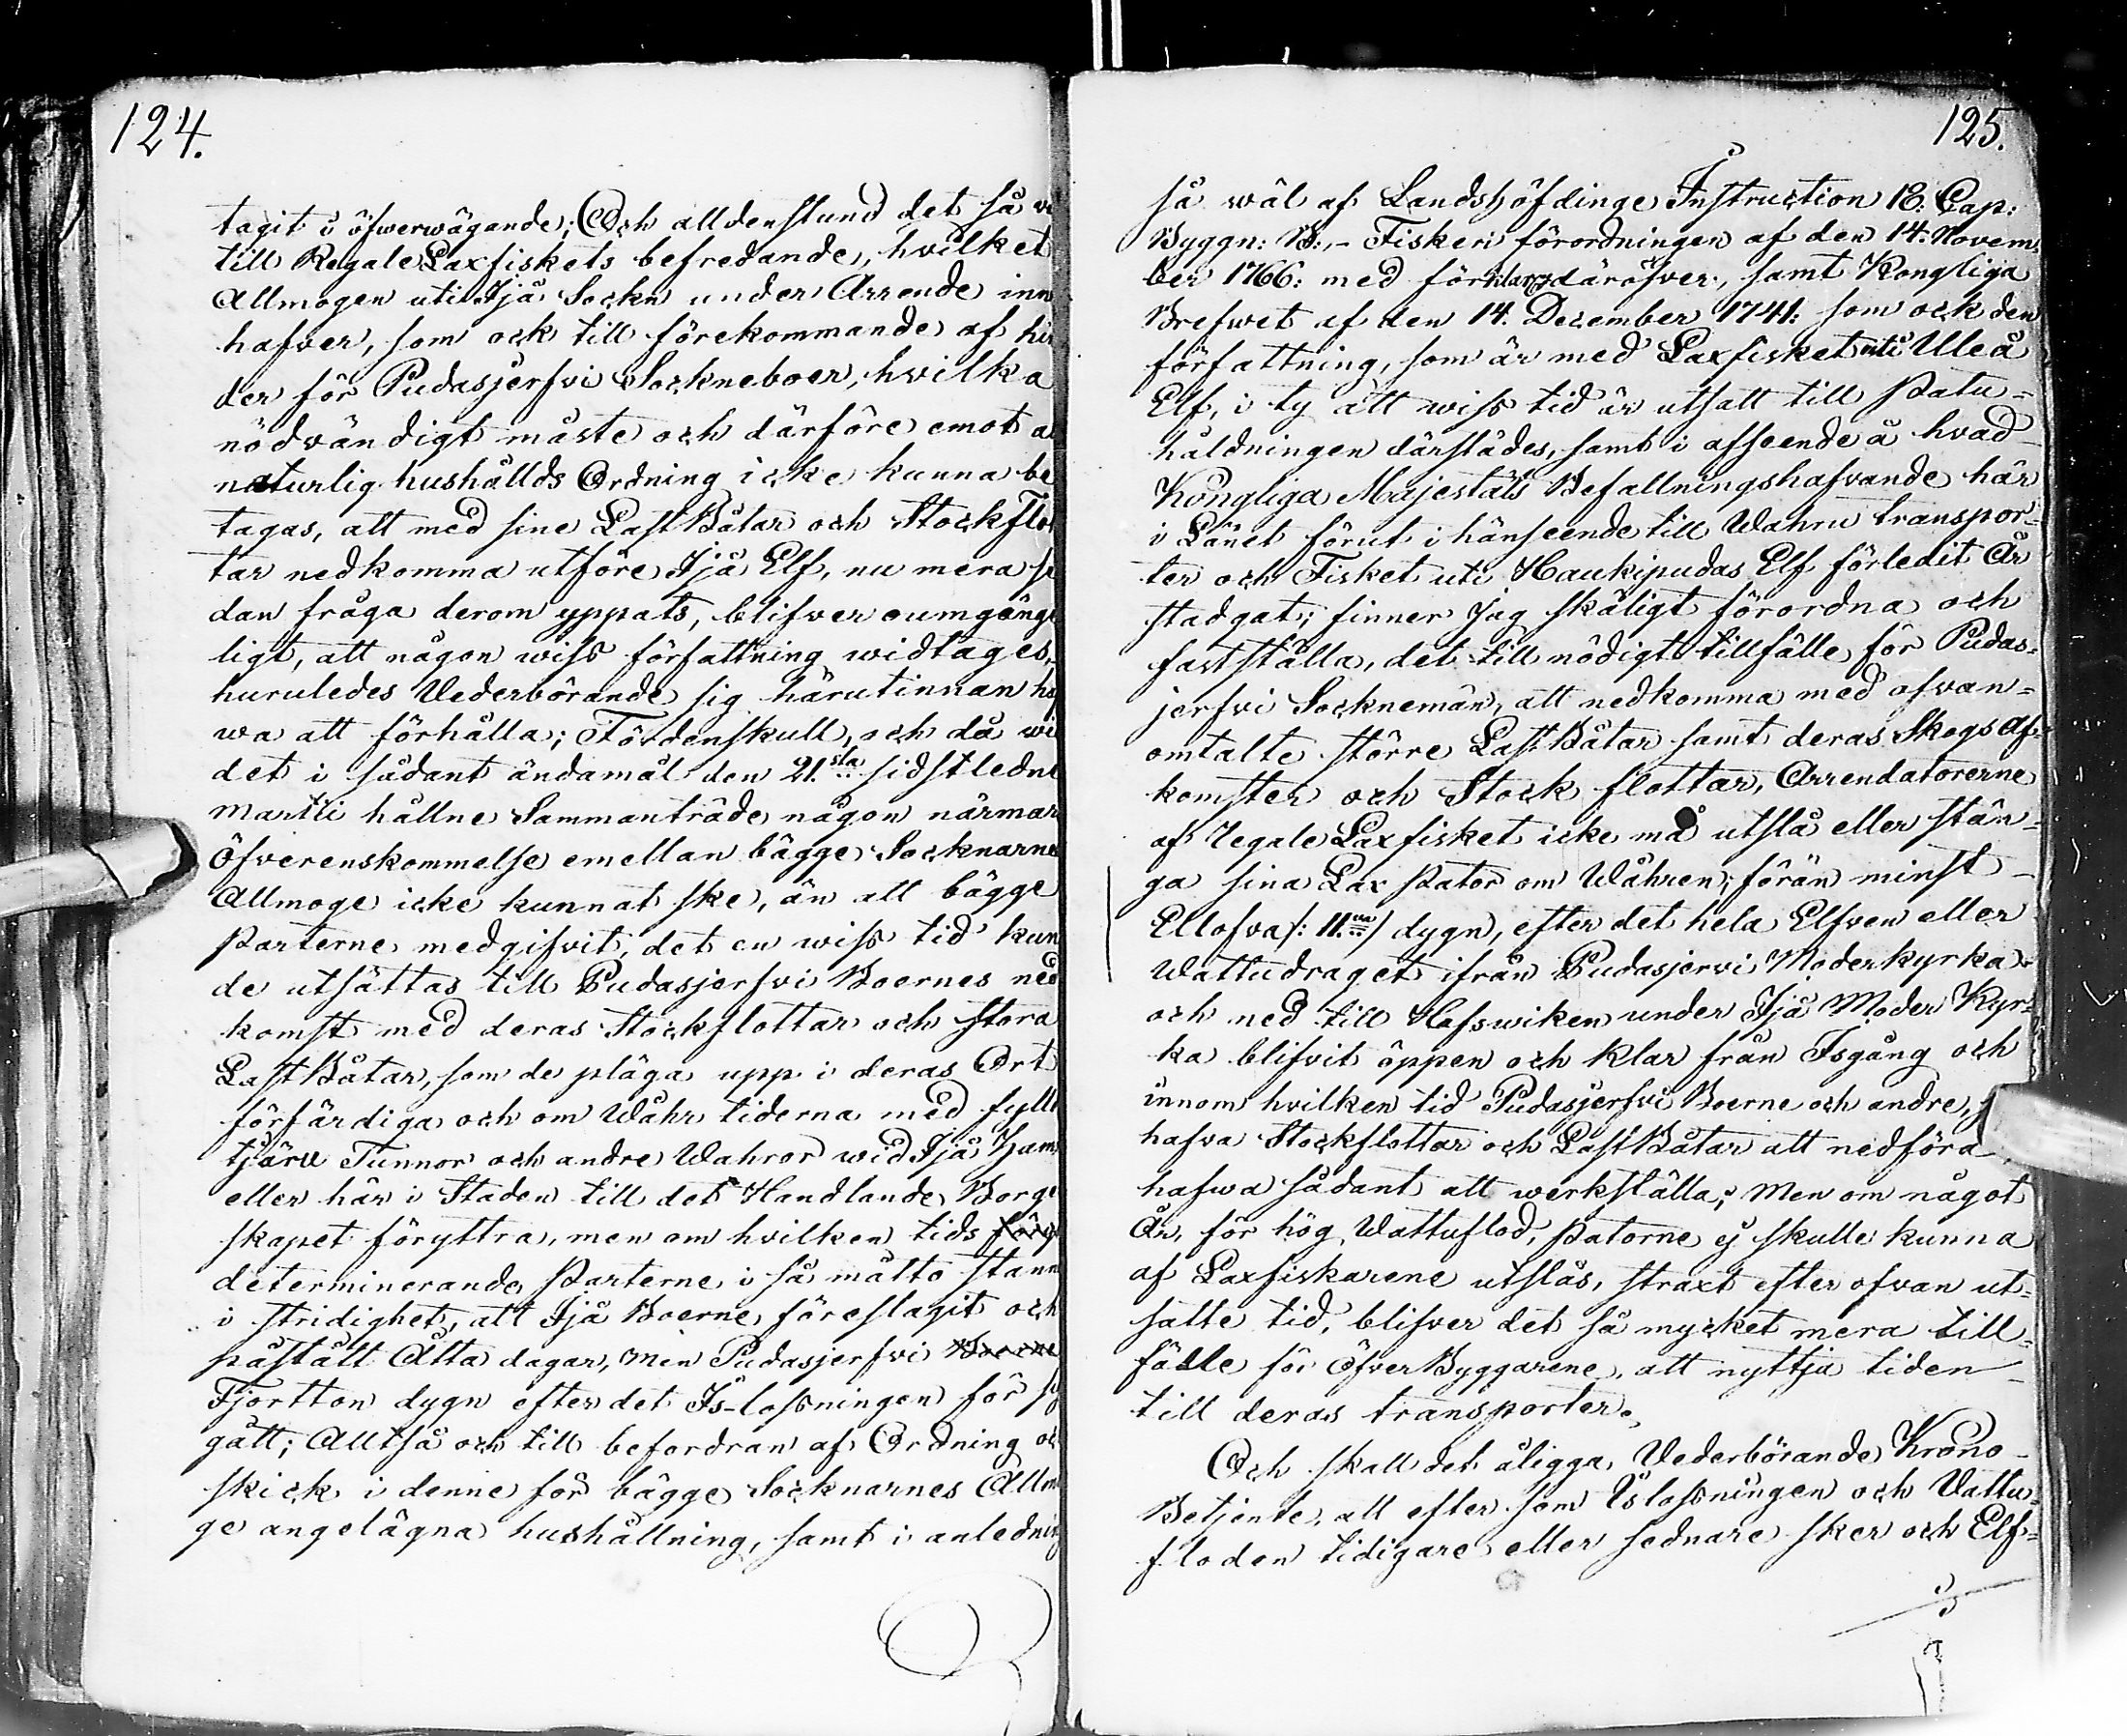 124.
tagit i öfwerwägande; Och alldenstund det så
till Regale Laxfiskets befredande, hvilket
Allmogen uti Ijå Sockn under Arrende inn
hafver, som ock till förekommande af hin
der för Pudasjerfvi Sockneboer, hvilka
nödvändigt måste och därföre emot
naturlig hushålds Ordning icke kunna be
tagas, att med sine Last Båtar och Stockflot
tar nedkomma utföre Ijå Elf, nu mera se
dan fråga derom yppats, blifver oumgänge
ligt, att någon wiss författning widtages,
huruledes Vederbörande sig härutinnan haf
wa att förhålla; Fördenskull, och då wi
det i sådant ändamål den 21.sta sidstledne
Martii hållne Sammanträde någon närmar
Öfverenskommelse emellan bägge Socknarne
Allmoge icke kunnat ske, än att bägge
Parterne medgifvit, det en wiss tid kun
de utsättas till Pudasjerfvi Boernes ned
komst med deras Stockflottar och stora
Last Båtar, som de pläga upp i deras Ort
förfärdiga och om Wåhr tiderna med fyllt
tjäru Tunnor och andre Wahror wid Ijå Ham
eller här i Staden till det Handlande Borge
skapet föryttra, men om hvilken tids
determinerande Parterne i så måtto stann
i stridighet, att Ijå Boerne föreslagit och
påstått Åtta dagar, men Pudasjerfvi Boerne
Fjortton dygn efter det Is-lossningen för sig
gått; Alltså och till befordran af Ordning oc
skick i denne för bägge Socknarnes Allmo
ge angelägna hushållning, samt i anledning
125.
så wäl af Landshöfdinge Instruction 18: Cap:
Byggn: B:, - Fiskeri förordningen af den 14: Novem
ber 1766: med förklar. däröfver, samt Kongliga
Brefwet af den 14. December 1741: som ock den
författning, som är med Laxfisket uti Uleå
Elf, i ty att wiss tid är utsatt till Patu-
håldningen därstädes, samt i afseende å hvad
Kongliga Majestäts Befallningshafvande här
i Länet förut i hänseende till Wahru transpor-
ter och Fisket uti Haukipudas Elf förledit År
stadgat; finner Jag skäligt förordna och
fastställa, det till nödigt tillfälle för Pudas-
jerfvi Socknemän, att nedkomma med ofvan-
omtalte större Last Båtar samt deras Skogs Af-
komster och Stock flottar, Arrendatorerne
af Regale Laxfisket icke må utslå eller stän-
ga sina Lax Pator om Wåhren, förän minst
Ellofva /: 11.va :/ dygn, efter det hela Elfven eller
Wattudraget ifrån Pudasjerwi Moderkyrka
och ned till Hafswiken under Ijå Moder Kyr-
ka blifvit öppen och klar från Isgång och
innom hvilken tid Pudasjerfvi Boerne och andre,
hafva Stockflottar och Last Båtar att nedföra
hafwa sådant att werkställa; Men om något
År, för hög Wattuflod, Patorne ej skulle kunna
af Laxfiskarene utslås, straxt efter ofvan ut-
satte tid, blifver det så mycket mera till-
fälle för Öfver Byggarene, att nyttja tiden
till deras transporter.
Och skall det åligga, Vederbörande Krono
Betjente, all efter som Islossningen och Vattu-
floden tidigare eller sednare sker och Elf-